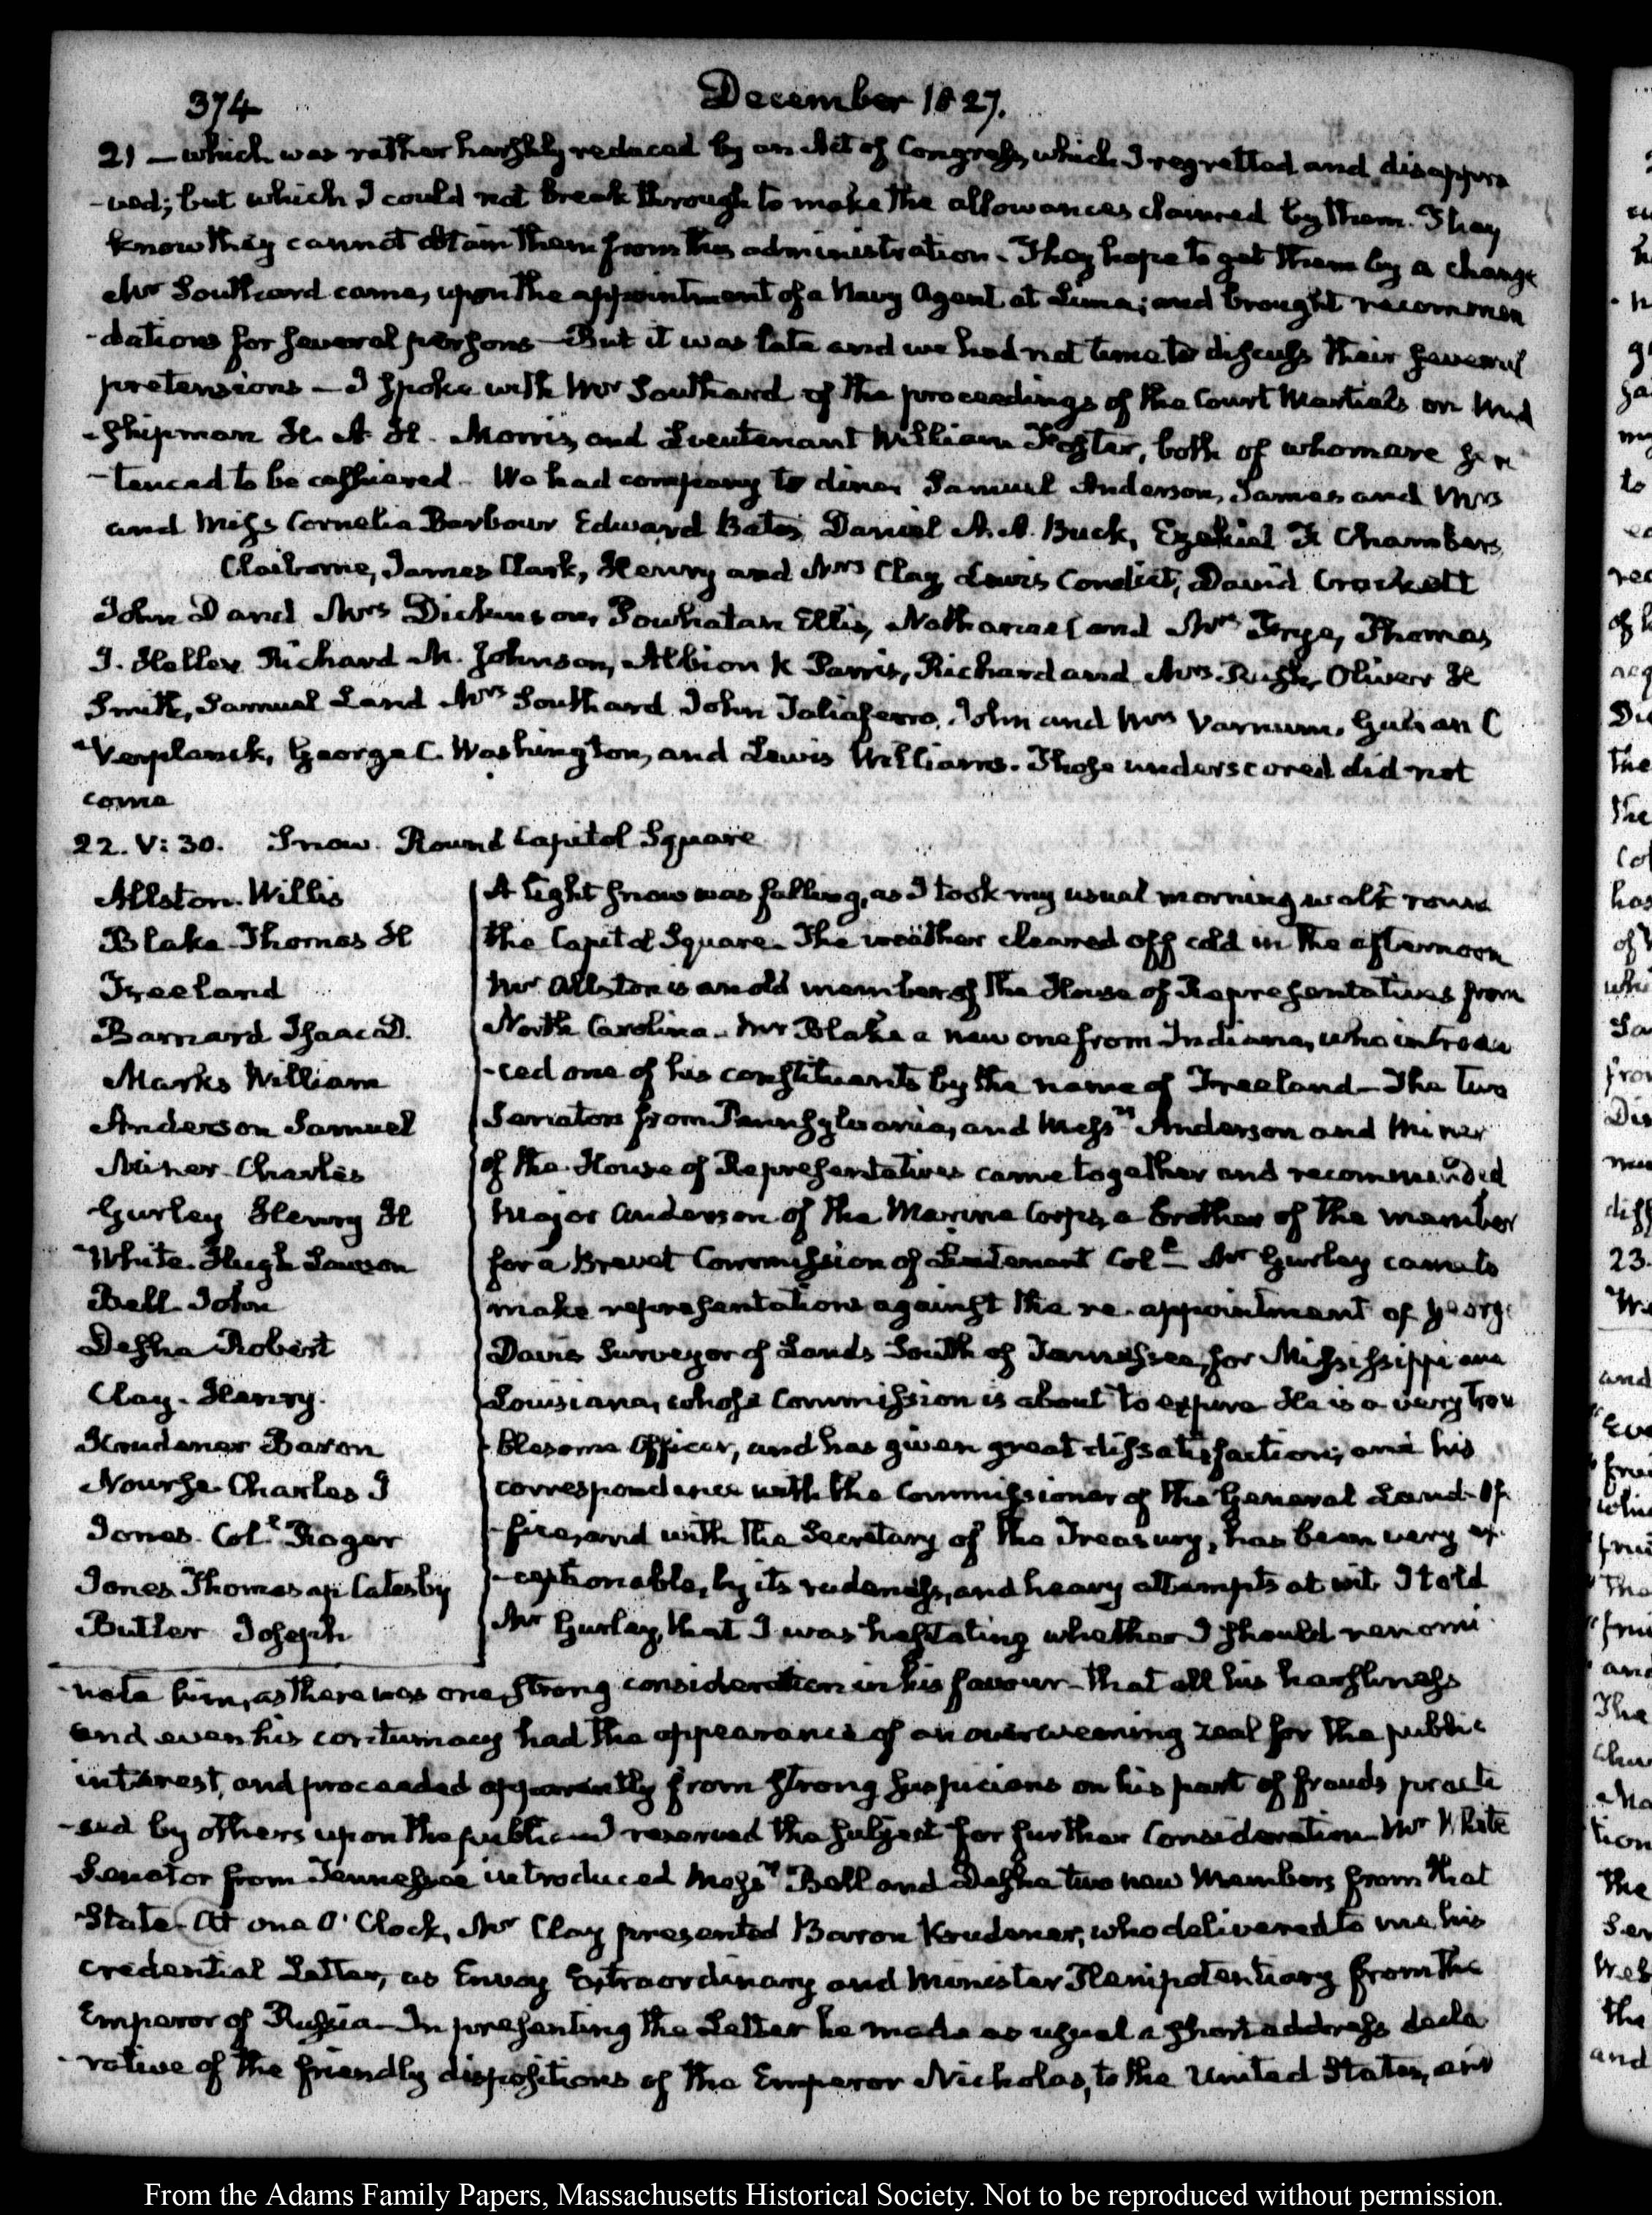 374
December 1827.
21 — which was rather harshly reduced by an Act of Congress, which I regretted and disappro
-ved; but which I could not break through to make the allowances claimed by them. They
know they cannot obtain them from this administration. They hope to get them by a change
Mr Southard came, upon the appointment of a Navy Agent at Lima; and brought recommen
-dations for several persons — But it was late and we had not time to discuss their several
pretensions — I spoke with Mr Southard of the proceedings of the Court Martials on Mid
-shipman H. A. H. Morris, and Lieutenant William Foster, both of whom are sen
-tenced to be cashiered. We had company to dine, Samuel Anderson, James and Mrs
and Miss Cornelia Barbour Edward Bates, Daniel A. A. Buck, Ezekiel F. Chambers,
Claiborne, James Clark, Henry and Mrs Clay, Lewis Condict, David Crockett
John D and Mrs Dickinson, Powhatan Ellis, Nathaniel and Mrs Frye, Thomas
J. Hellen Richard M. Johnson, Albion K Parris, Richard and Mrs Rush, Oliver H
Smith, Samuel L and Mrs Southard John Taliaferro, John and Mrs Varnum, Gulian C
Verplanck, George C. Washington, and Lewis Williams. Those underscored did not
come
22. V: 30. Snow. Round Capitol Square
Allston. Willis
Blake Thomas H
Freeland
Barnard Isaac D.
Marks William
Anderson Samuel
Miner Charles
Gurley Henry H
White. Hugh Lawson
Bell John
Desha Robert
Clay. Henry.
Krudener Baron
Nourse Charles J
Jones. Coll. Roger
Jones Thomas ap Catesby
Butler Joseph
A light snow was falling, as I took my usual morning walk round
the Capitol Square. The weather cleared off cold in the afternoon
Mr Allston is an old member of the House of Representatives from
North Carolina. Mr Blake a new one from Indiana, who introdu
-ced one of his constituents by the name of Freeland — The two
Senators from Pennsylvania, and Messrs Anderson and Miner
of the House of Representatives came together and recommended
Major Anderson of the Marine Corps, a brother of the member
for a Brevet Commission of Lieutenant Coll. Mr Gurley came to
make representations against the re-appointment of George
Davis Surveyor of Lands South of Tennessee, for Mississippi and
Louisiana, whose Commission is about to expire He is a very trou
-blesome Officer, and has given great dissatisfaction; and his
correspondence with the Commissioner of the General Land-Of
-fice, and with the Secretary of the Treasury, has been very ex
-ceptionable, by its rudeness, and heavy attempts at wit I told
Mr Gurley, that I was hesitating whether I should renomi
-nate him, as there was one strong consideration in his favour — that all his harshness
and even his contumacy had the appearance of an overweening zeal for the public
interest, and proceeded apparently from strong suspicions on his part of frauds practi
-sed by others upon the public. I reserved the subject for further consideration. Mr White
Senator from Tennessee introduced Messrs Bell and Desha two new Members from that
State. At one O'Clock, Mr Clay presented Baron Krudener, who delivered to me his
credential Letter, as Envoy Extraordinary and Minister Plenipotentiary from the
Emperor of Russia — In presenting the Letter he made as usual a short address decla
-rative of the friendly dispositions of the Emperor Nicholas, to the United States, and
From the Adams Family Papers, Massachusetts Historical Society. Not to be reproduced without permission.